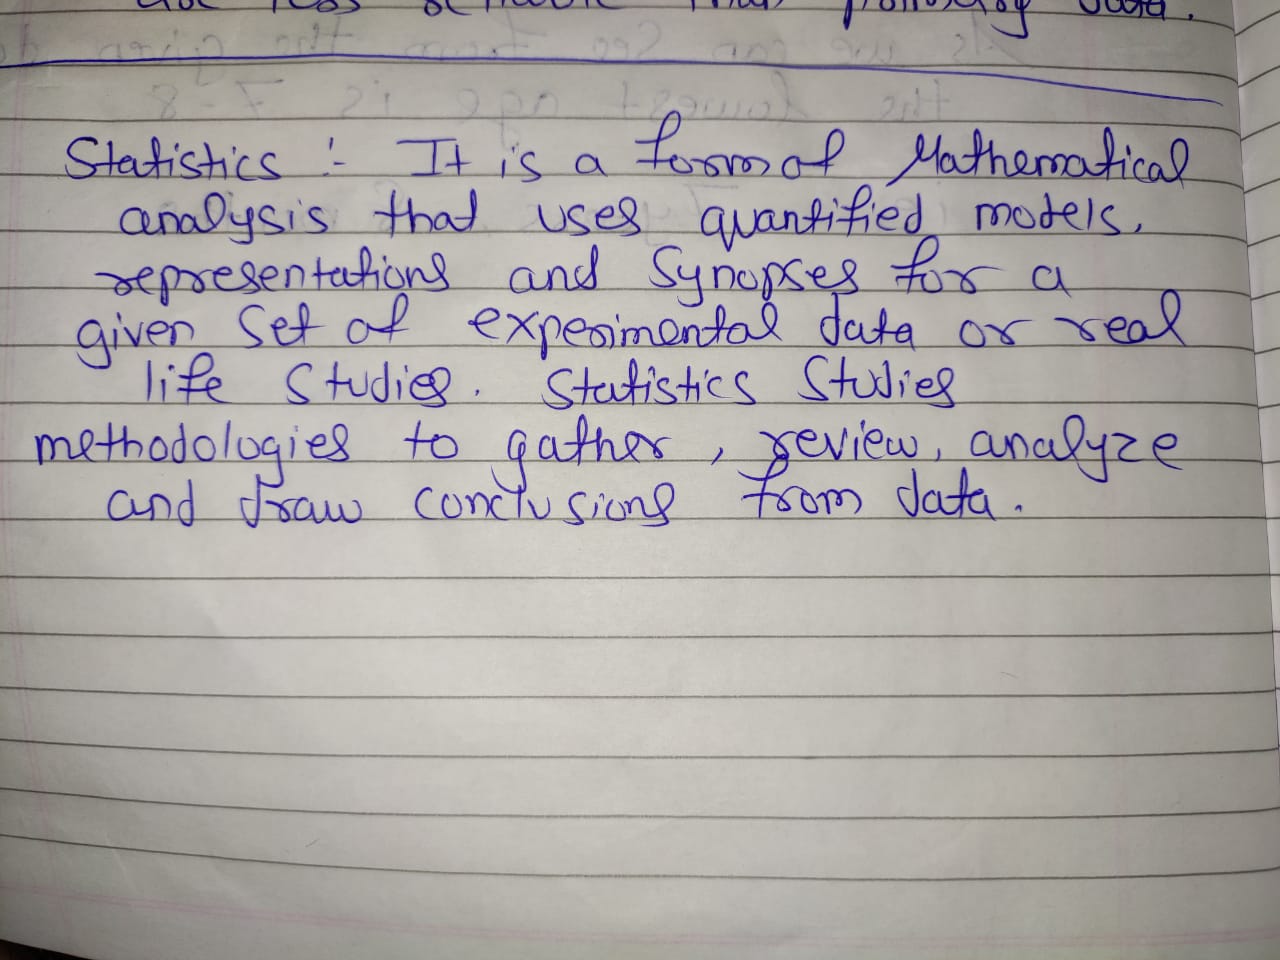 are less reliable than primary data.
Statistics :- It is a form of Mathematical
analysis that uses quantified models,
representations and Synopses for a
given Set of experimental data or real
life Studies. Statistics Studies
methodologies to gather, review, analyze
and draw conclusions from data.